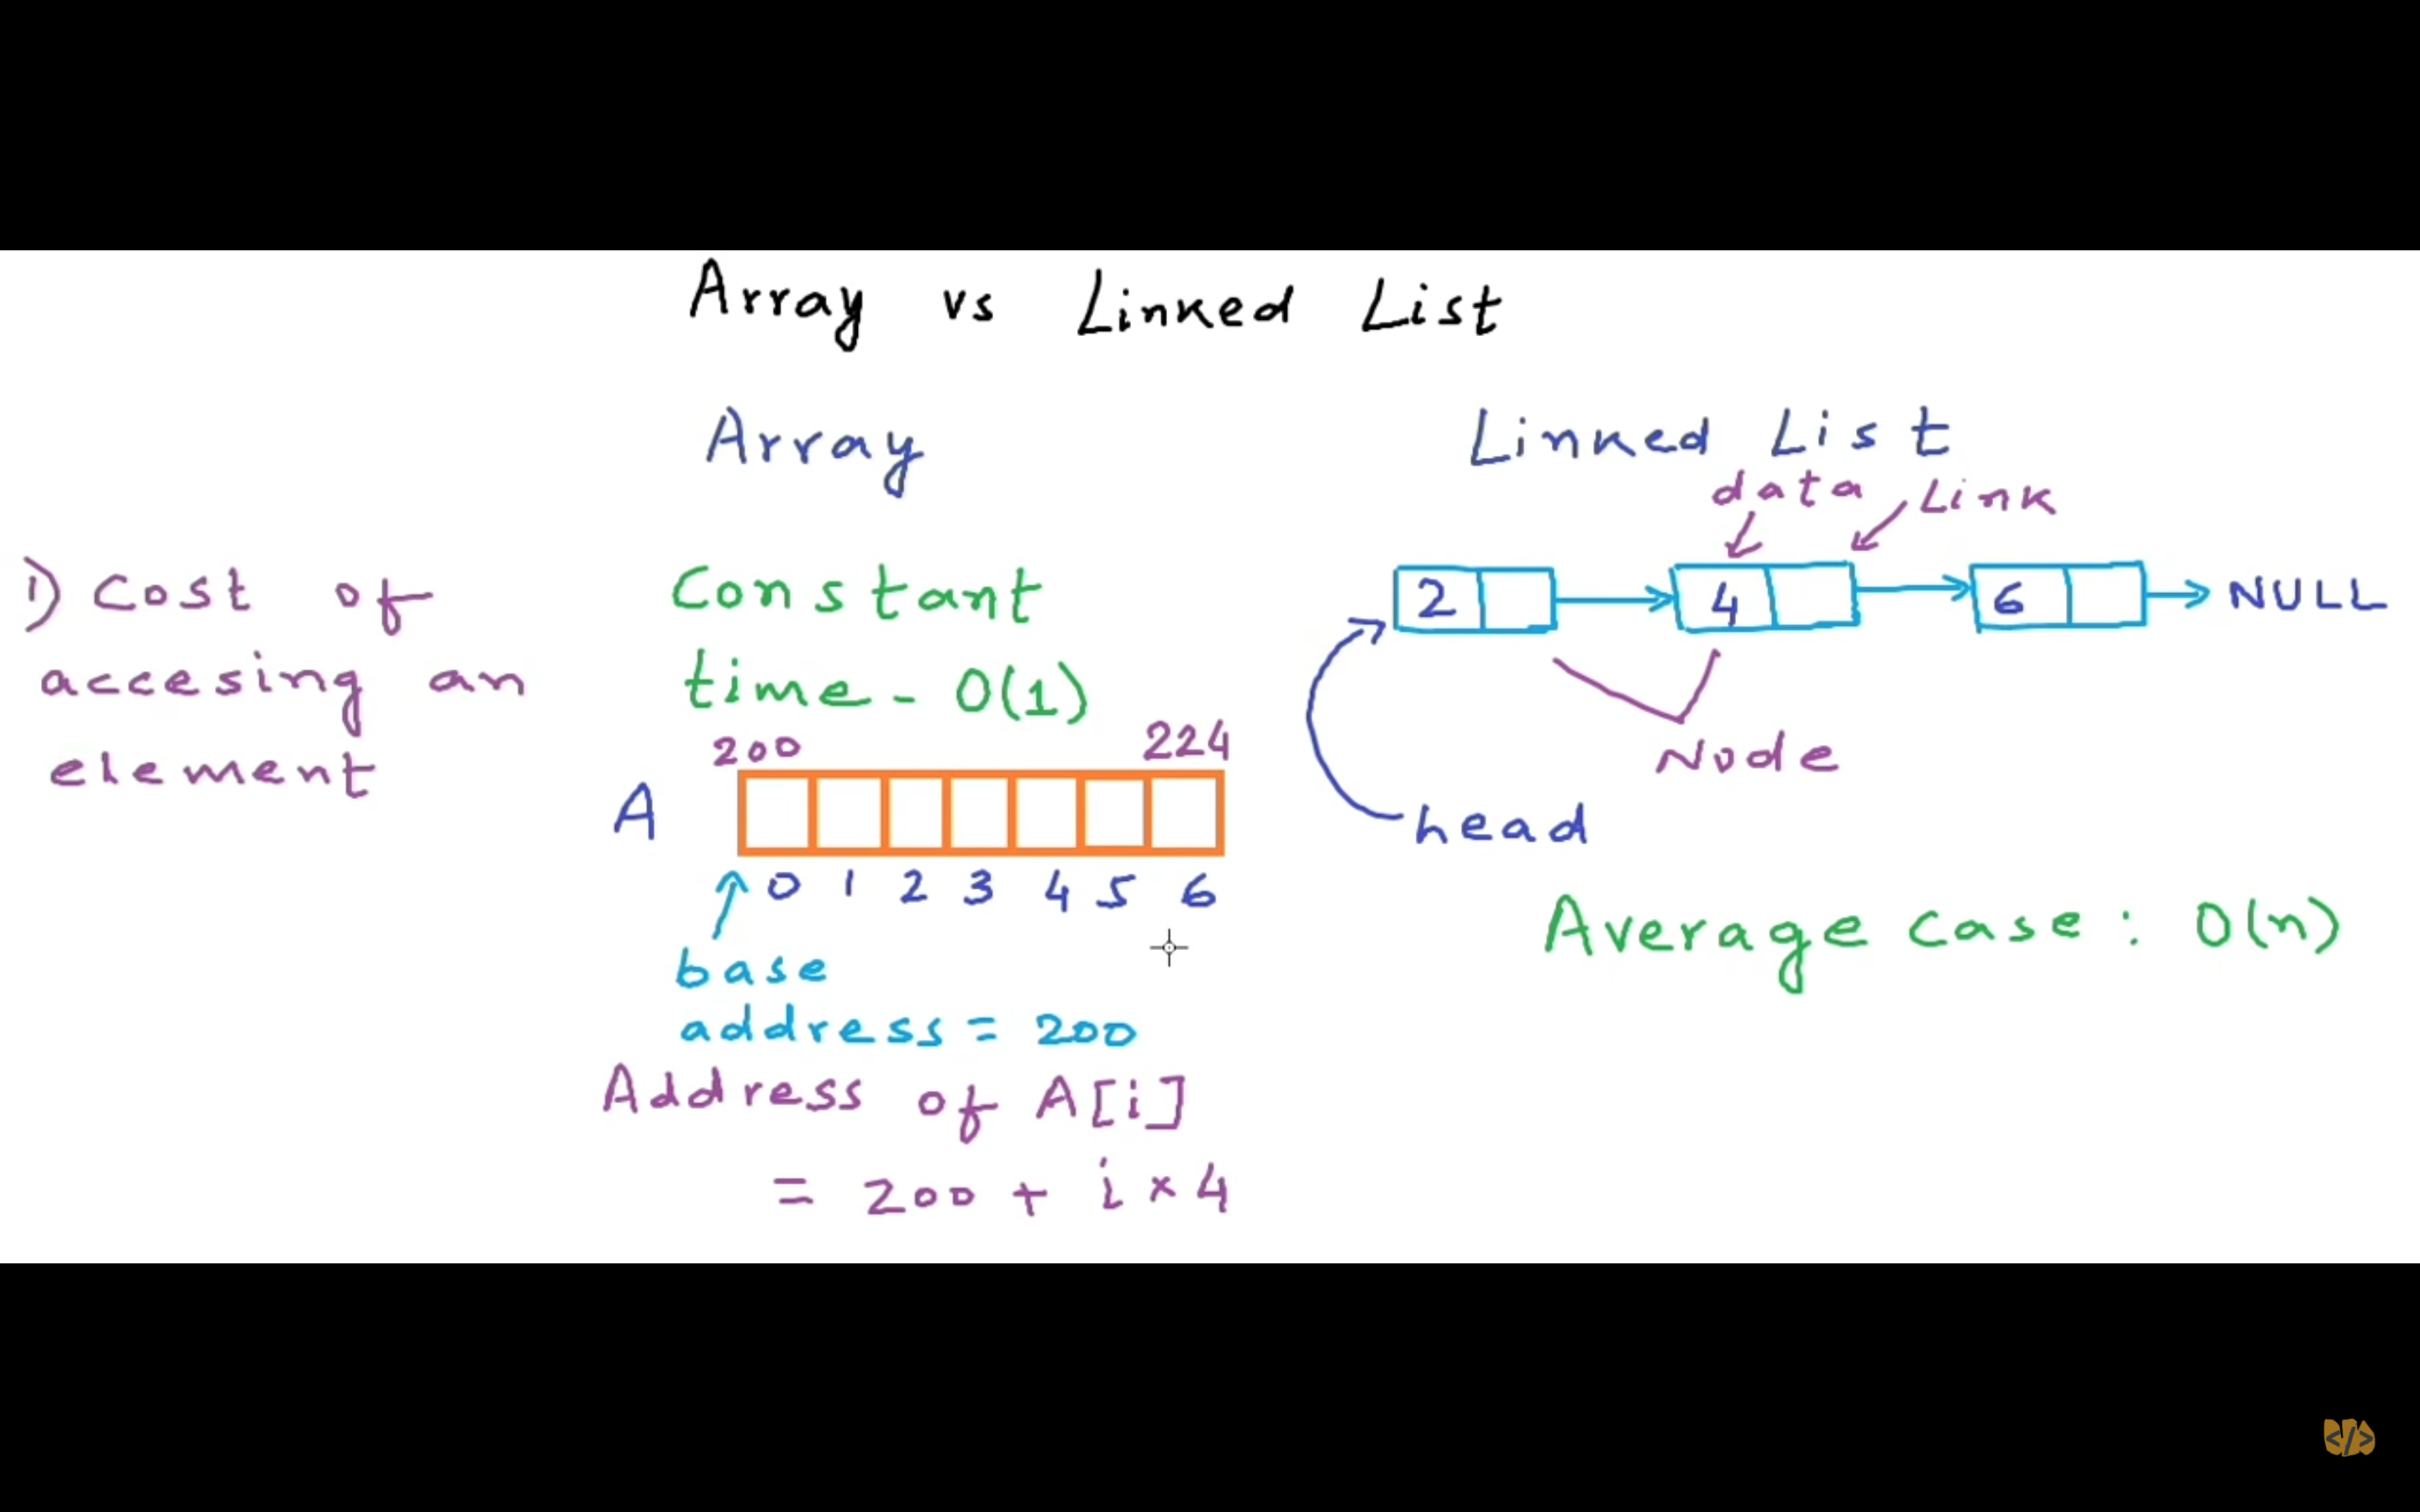 Array vs Linked List
Array
Linked List
data
Link
1) Cost of
accesing an
element
Constant
time - O(1)
200
224
A
0 1 2 3 4 5 6
base
address = 200
Address of A[i]
= 200 + i × 4
2
4
6
NULL
Node
head
Average case: O(n)
</>